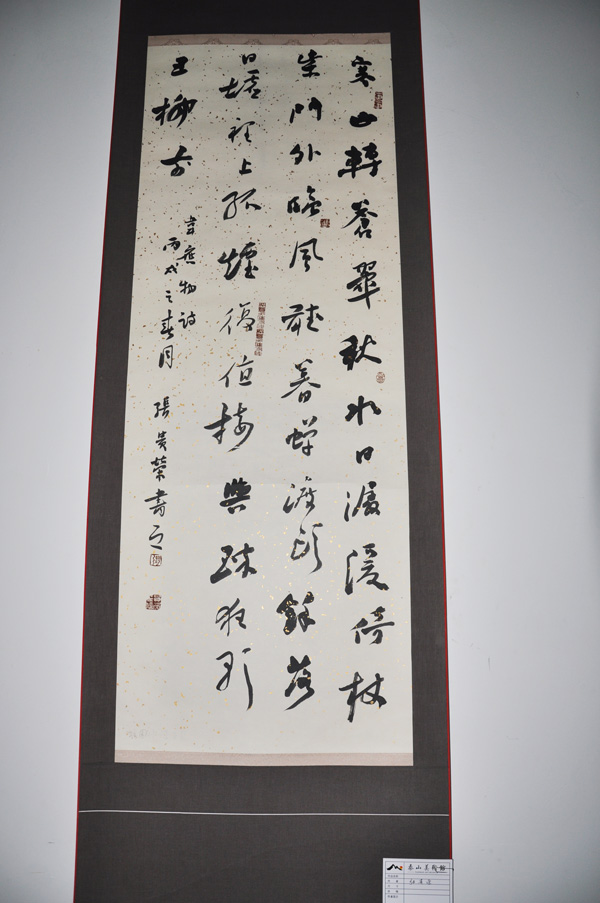 寒山轉蒼翠秋水日潺湲倚杖
柴門外臨風聽暮蟬渡頭餘落
日墟裡上孤煙復值接輿醉狂歌
五柳前
韋應物詩
丙戌之春月 張貴榮書之
泰山美術館